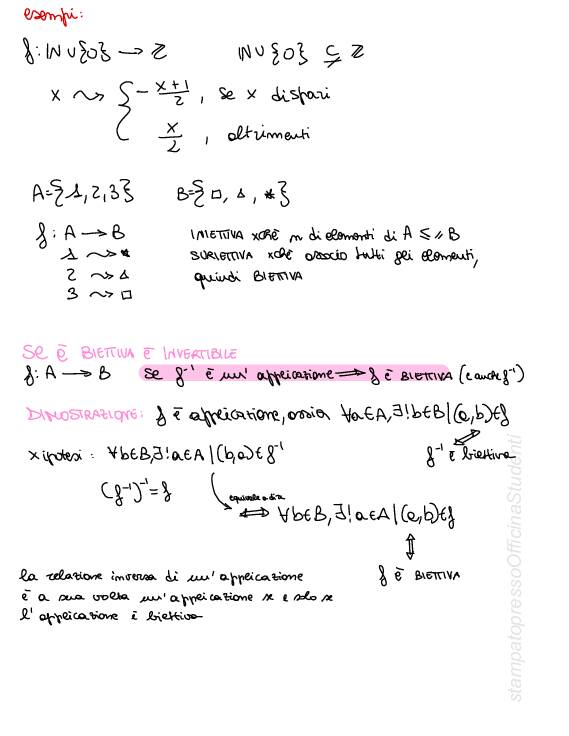 esempi:
f: ℕ∪{0} → ℤ ℕ∪{0} ⊊ ℤ
x ⇝ { - x+1/2 , se x dispari
x/2 , altrimenti
A={1,2,3} B={□, △, *}
f: A → B INIETTIVA xchè n di elementi di A ≤ // B
1 ⇝ * SURIETTIVA xchè associo tutti gli elementi,
2 ⇝ △ quindi BIETTIVA
3 ⇝ □
SE È BIETTIVA È INVERTIBILE
f: A → B se f⁻¹ è un' applicazione ⟹ f è BIETTIVA (e anche f⁻¹)
DIMOSTRAZIONE: f è applicazione, ossia ∀a∈A, ∃!b∈B | (a,b)∈f
x ipotesi: ∀b∈B, ∃!a∈A | (b,a)∈f⁻¹ ⟺ f⁻¹ è biettiva
(f⁻¹)⁻¹ = f
equivale a dire
⟺ ∀b∈B, ∃!a∈A | (a,b)∈f
⟺
f è BIETTIVA
la relazione inversa di un' applicazione
è a sua volta un' applicazione se e solo se
l' applicazione è biettiva
stampatopressoOfficinaStudenti